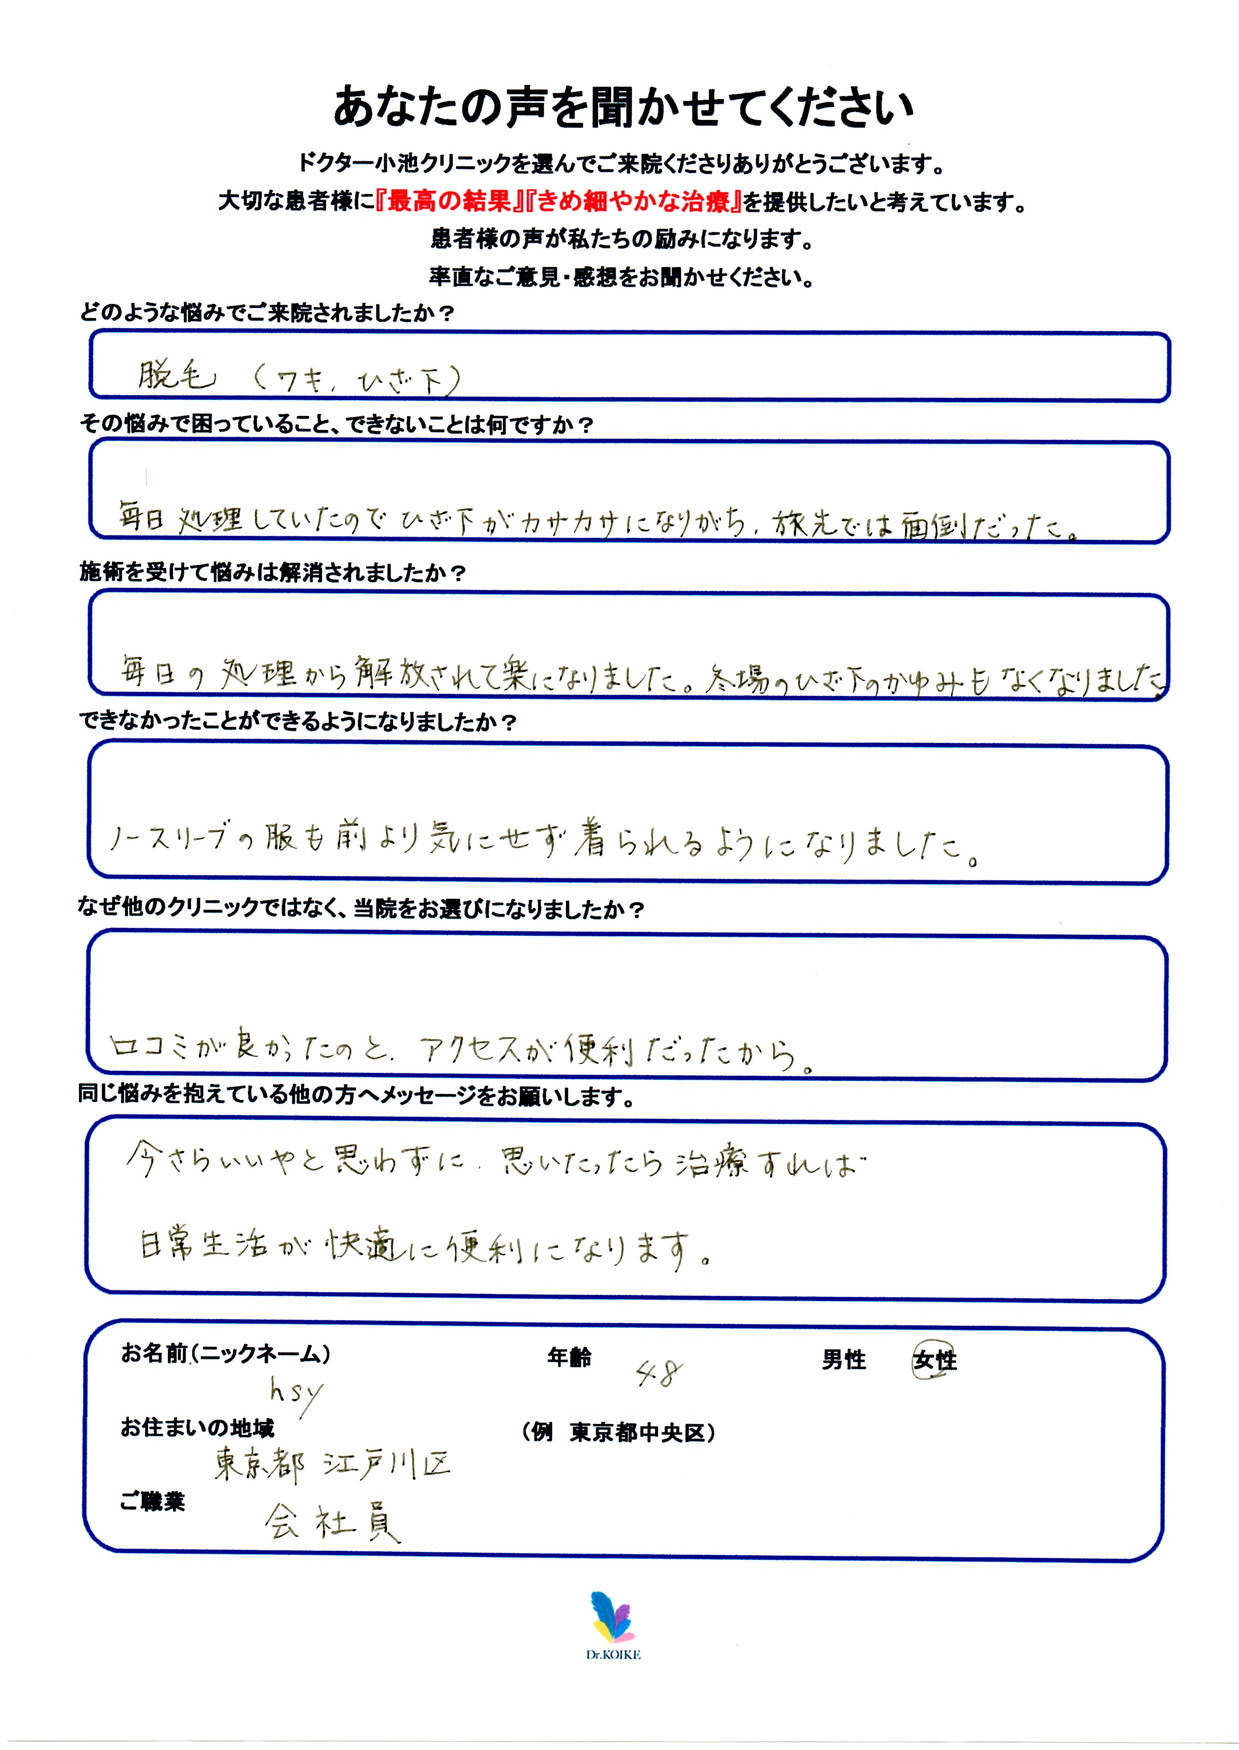 あなたの声を聞かせてください
ドクター小池クリニックを選んでご来院くださりありがとうございます。
大切な患者様に『最高の結果』『きめ細やかな治療』を提供したいと考えています。
患者様の声が私たちの励みになります。
率直なご意見・感想をお聞かせください。
どのような悩みでご来院されましたか？
脱毛 （ワキ、ひざ下）
その悩みで困っていること、できないことは何ですか？
毎日処理していたのでひざ下がカサカサになりがち、旅先では面倒だった。
施術を受けて悩みは解消されましたか？
毎日の処理から解放されて楽になりました。冬場のひざ下のかゆみもなくなりました。
できなかったことができるようになりましたか？
ノースリーブの服も前より気にせず着られるようになりました。
なぜ他のクリニックではなく、当院をお選びになりましたか？
口コミが良かったのと、アクセスが便利だったから。
同じ悩みを抱えている他の方へメッセージをお願いします。
今さらいいやと思わずに、思いたったら治療すれば
日常生活が快適に便利になります。
お名前（ニックネーム） 年齢 48 男性 女性
hsy
お住まいの地域 （例 東京都中央区）
東京都 江戸川区
ご職業
会社員
Dr.KOIKE